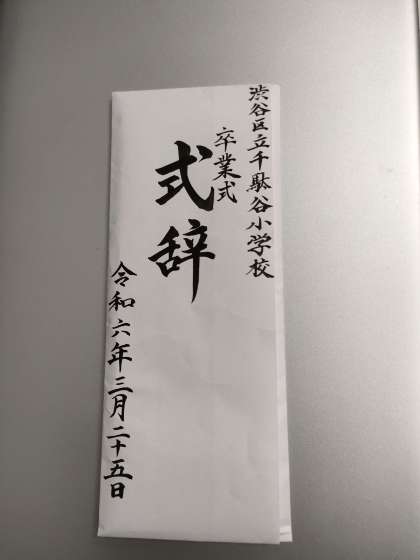 渋谷区立千駄谷小学校
卒業式
式辞
令和六年三月二十五日